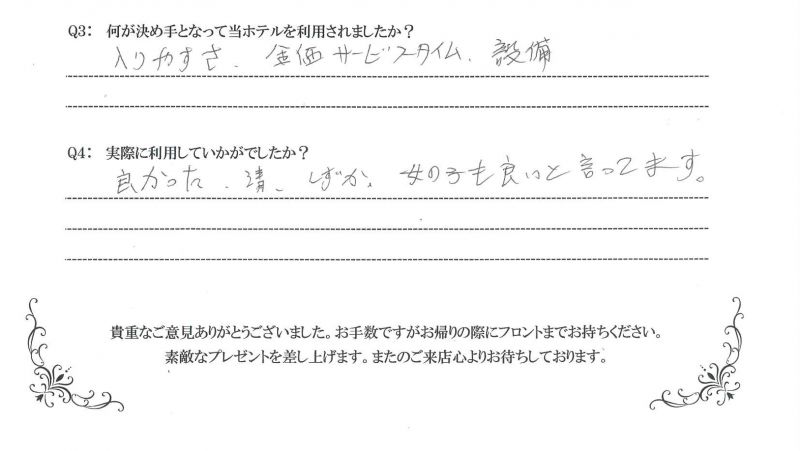 Q3: 何が決め手となって当ホテルを利用されましたか？
入りやすさ、金価サービスタイム、設備
Q4: 実際に利用していかがでしたか？
良かった、清、しずか、女の子も良いと言ってます。
貴重なご意見ありがとうございました。お手数ですがお帰りの際にフロントまでお持ちください。
素敵なプレゼントを差し上げます。またのご来店心よりお待ちしております。